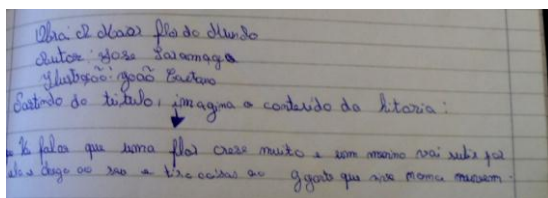 Obra: A Maor flor do Mundo
Autor: Jose Saramago
Ilustração: João Caetano
Partindo do título, imagina o conteúdo da hitoria:
falar que uma flor crese muito e um menino vai subir por
e chega ao seu e tira coisas ao gigante que vive numa nuvem.